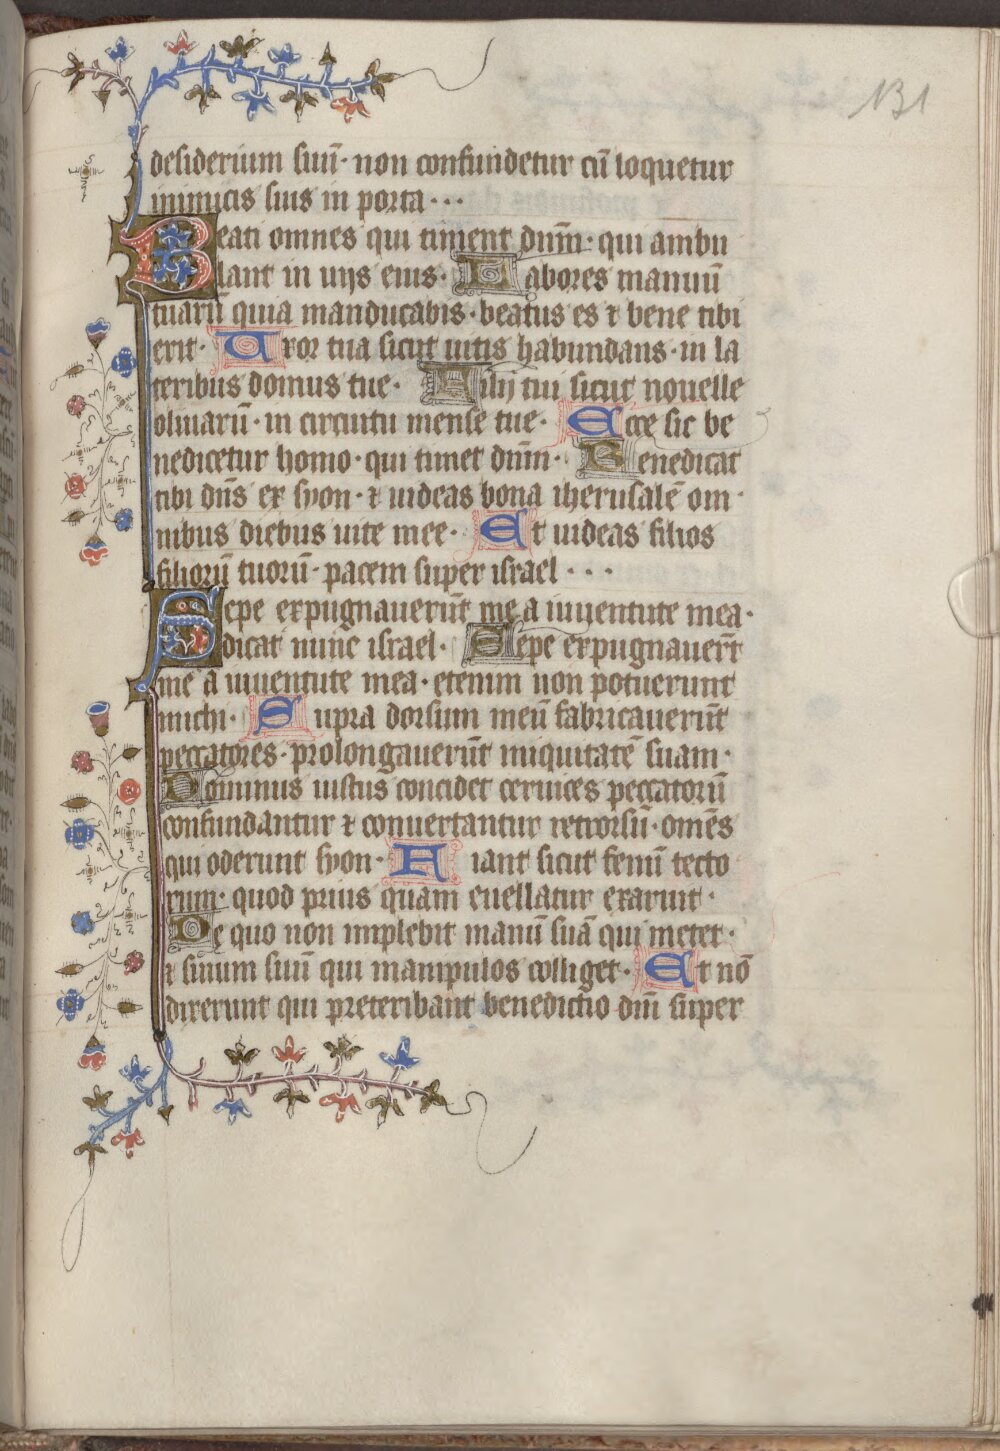 131
desiderium suū· non confundetur cū loquetur
inimicis suis in porta···
Beati omnes qui timent dn̄m· qui ambu
lant in uijs eius· Labores manuū
tuarū quia manducabis· beatus es ⁊ bene tibi
erit· Uxor tua sicut uitis habundans· in la
teribus domus tue· Filij tui sicut nouelle
oliuarū· in circuitu mense tue· Ecce sic be
nedicetur homo· qui timet dn̄m· Benedicat
tibi dn̄s ex syon· ⁊ uideas bona iherusalē om·
nibus diebus uite mee· Et uideas filios
filiorū tuorū· pacem super israel···
Sepe expugnauerūt me a iuuentute mea·
dicat nunc israel· Sepe expugnauerūt
me a iuuentute mea· etenim non potuerunt
michi· Supra dorsum meū fabricauerūt
peccatores· prolongauerūt iniquitatē suam·
Dominus iustus concidet ceruices peccatorū
confundantur ⁊ conuertantur retrorsū· omēs
qui oderunt syon· Fiant sicut fenū tecto
rum· quod prius quam euellatur exaruit·
De quo non impleuit manū suā qui metet·
⁊ sinum suū qui manipulos colliget· Et nō
dixerunt qui preteribant benedictio dn̄i super